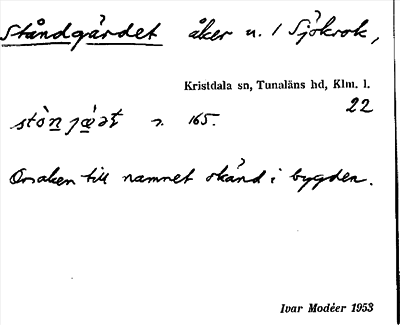 Ståndgärdet åker n. 1 Sjökrok,
Kristdala sn, Tunaläns hd, Klm. l.
22
n. 165.
Orsaken till namnet okänd i bygden.
Ivar Modéer 1953